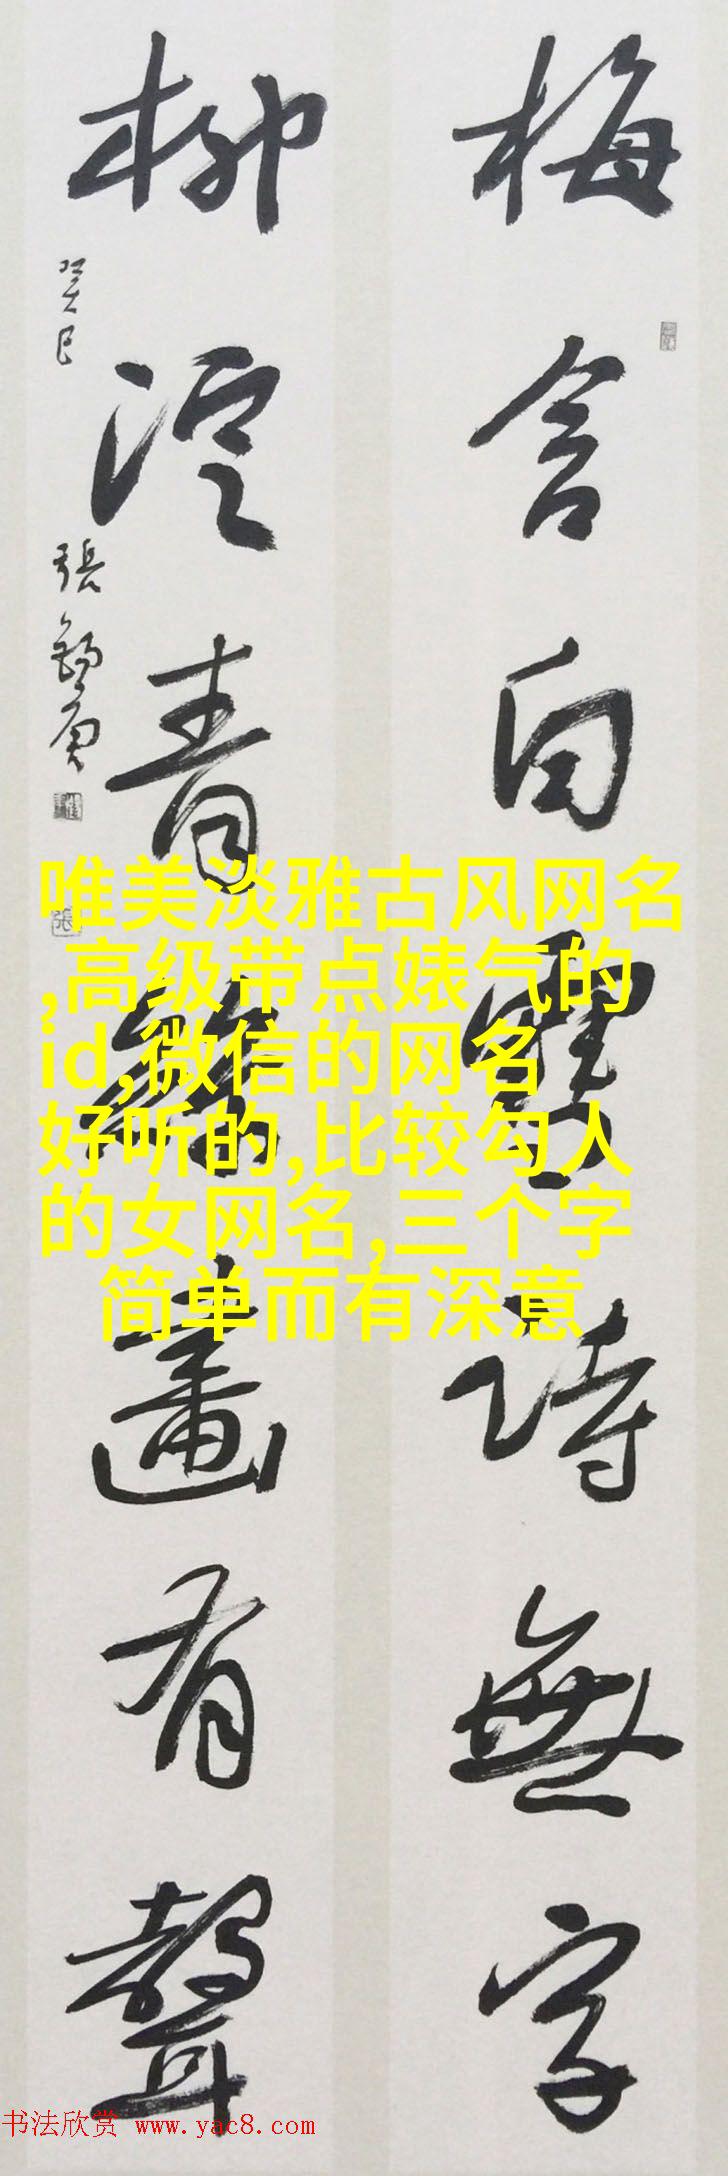 梅含白雪詩無字
柳青畫有聲
癸巳
張
唯美淡雅古风网名
,高级带点婊气的
id,微信的网名
好听的,比较勾人
的女网名,三个字
简单而有深意
书法欣赏 www.yac8.com